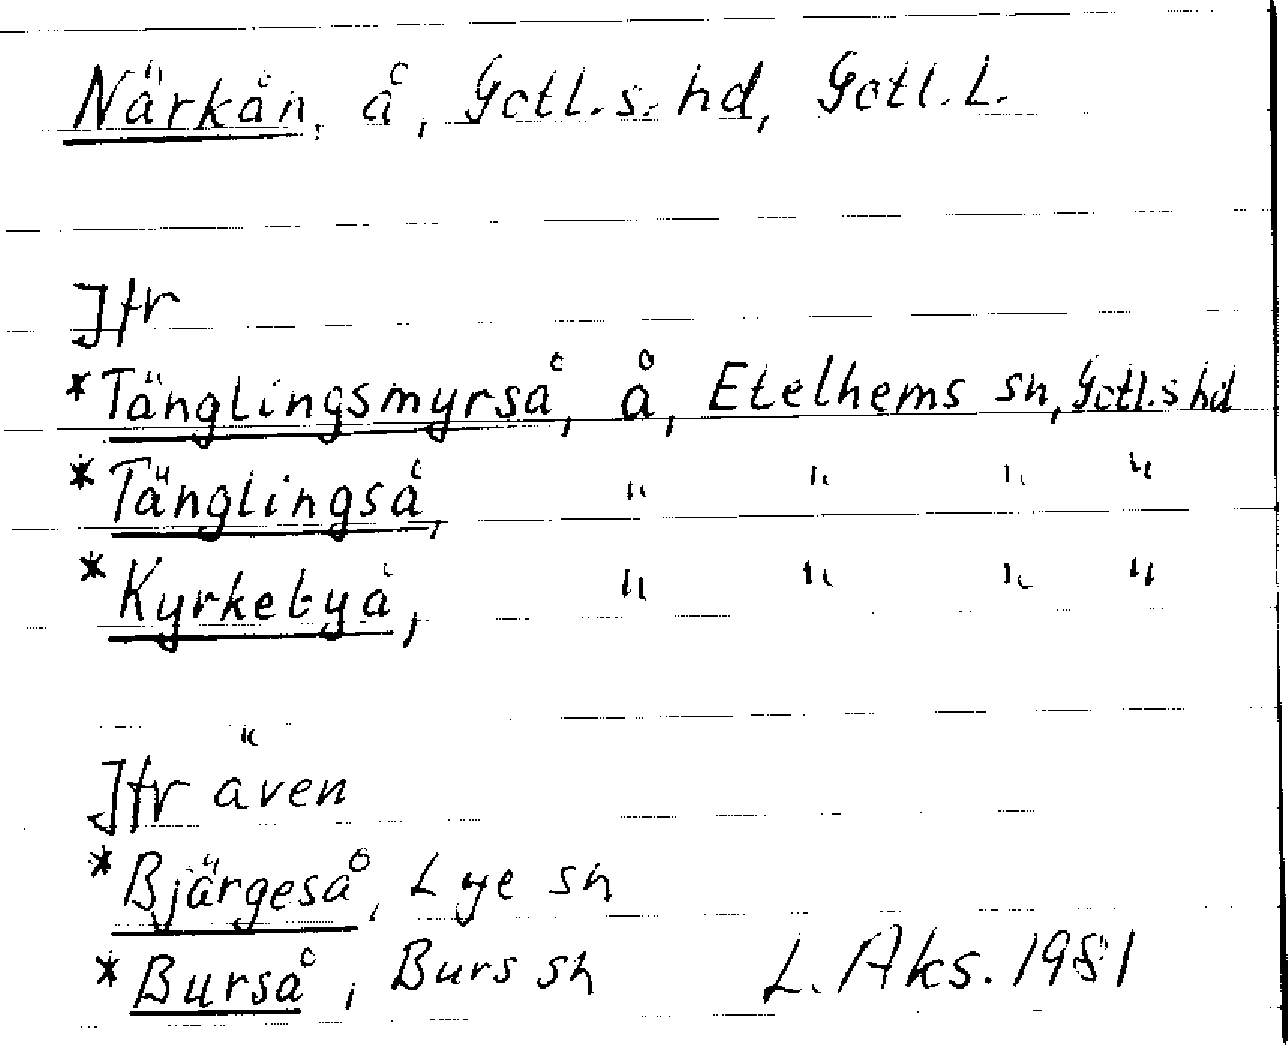 Närkån, å, Gotl. s. hd, Gotl. L.
Jfr
*Tänglingsmyrså, å, Etelhems sn, Gotl. s hd
*Tänglingså, " " " "
*Kyrkebyå, " " " "
Jfr även
*Bjärgeså, Lye sn
*Burså, Burs sn L. Aks. 1981